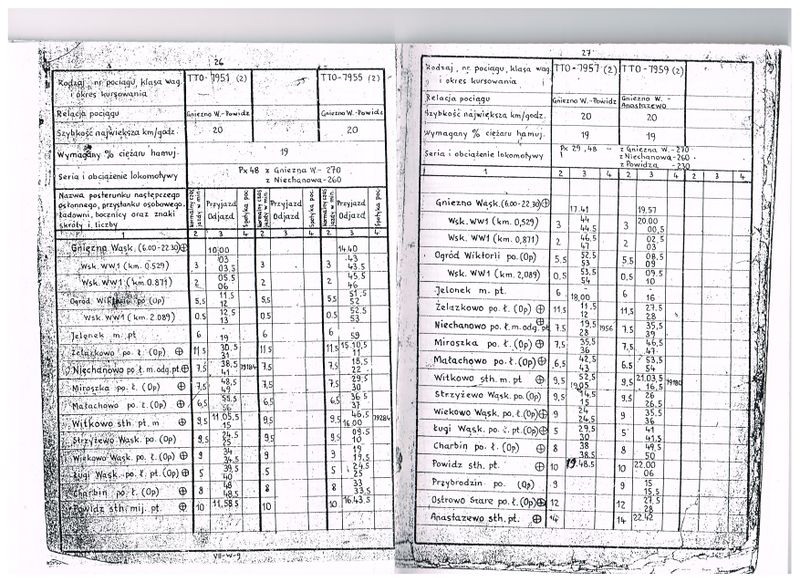 26
Rodzaj, nr pociągu, klasa wag. i okres kursowania TTO-7951 (2) TTO-7955 (2)
Relacja pociągu Gniezno W.-Powidz Gniezno W.-Powidz
Szybkość największa km/godz. 20 20
Wymagany % ciężaru hamuj. 19
Seria i obciążenie lokomotywy Px48 z Gniezna W - 270
z Niechanowa-260
Nazwa posterunku następczego
osłonnego, przystanku osobowego,
ładowni, bocznicy oraz znaki
skróty i liczby
Przyjazd Odjazd Przyjazd Odjazd Przyjazd Odjazd
1 2 3 4 2 3 4 2 3 4
Gniezno Wąsk. (6.00-22.30) 10.00 14.40
Wsk. WW1 (km. 0.529) 3 03 03,5 3 3 43 43.5
Wsk. WW1 (km 0.871) 2 05.5 06 2 2 45.5 46
Ogród Wiktorii po (Op) 5,5 11.5 12 5,5 5,5 51,5 52
Wsk. WW1 (km. 2.089) 0.5 12.5 13 0.5 0.5 52.5 53
Jelonek m. pt 6 19 6 6 59
Żelazkowo po. ł. (Op) 11,5 30,5 31 11,5 11,5 15.10,5 11
Niechanowo po ł. m. odg. pt. 7,5 38,5 41 7,5 7,5 18,5 22
Miroszka po. ł. (Op) 7,5 48,5 49 7,5 7,5 29,5 30
Małachowo po. ł. (Op) 6,5 55.5 56 6,5 6,5 36,5 37
Witkowo sth. pt. m 9,5 11.05.5 15 9,5 9,5 46,5 16.00 79284
Strzyżewo Wąsk. po (Op) 9,5 24,5 25 9,5 9,5 09,5 10
Wiekowo Wąsk. po. ł. (Op) 9 34 34,5 9 9 19 19,5
Ługi Wąsk. po. ł. pt. (Op) 5 39,5 40 5 5 24,5 25
Charbin po. ł. (Op) 8 48 48,5 8 8 33 33,5
Powidz sth. mij. pt. 10 11.58.5 10 10 16.43,5
VII-W-9
27
Rodzaj, nr pociągu, klasa wag. i okres kursowania TTO-7957 (2) TTO-7959 (2)
Relacja pociągu Gniezno W.-Powidz Gniezno W.- Anastazewo
Szybkość największa km/godz. 20 20
Wymagany % ciężaru hamuj. 19 19
Seria i obciążenie lokomotywy Px 29, 48 - z Gniezna W. -270
z Niechanowa -260
z Powidza -230
1 2 3 4 2 3 4 2 3 4
Gniezno Wąsk. (6.00-22.30) 17.41 19.57
Wsk. WW1 (km. 0,529) 3 44 44.5 3 20.00 00,5
Wsk. WW1 (km. 0,871) 2 46.5 47 2 02,5 03
Ogród Wiktorii po. (Op) 5,5 52,5 53 5,5 08,5 09
Wsk. WW1 (km. 2,089) 0,5 53,5 54 0,5 09,5 10
Jelonek m. pt 6 18.00 6 16
Żelazkowo po. ł. (Op) 11,5 11,5 12 11,5 27,5 28
Niechanowo po ł. m. odg. pt 7,5 19,5 28 7956 7,5 35,5 39
Miroszka po. ł. (Op) 7,5 35,5 36 7,5 46,5 47
Małachowo po. ł. (Op) 6,5 42,5 43 6,5 53,5 54
Witkowo sth. m. pt 9,5 52,5 19.05 9,5 21.03,5 16,5
Strzyżewo Wąsk. po. (Op) 9,5 14,5 15 9,5 26 26,5
Wiekowo Wąsk. po. ł. (Op) 9 24 24,5 9 35,5 36
Ługi Wąsk. po. ł. pt. (Op) 5 29,5 30 5 41 41,5
Charbin po. ł. (Op) 8 38 38,5 8 49,5 50
Powidz sth. pt. 10 19.48.5 10 22.00 06
Przybrodzin po. (Op) 9 9 15 15,5
Ostrowo Stare po. ł. (Op) 12 12 27,5 28
Anastazewo sth. pt. 14 14 22.42